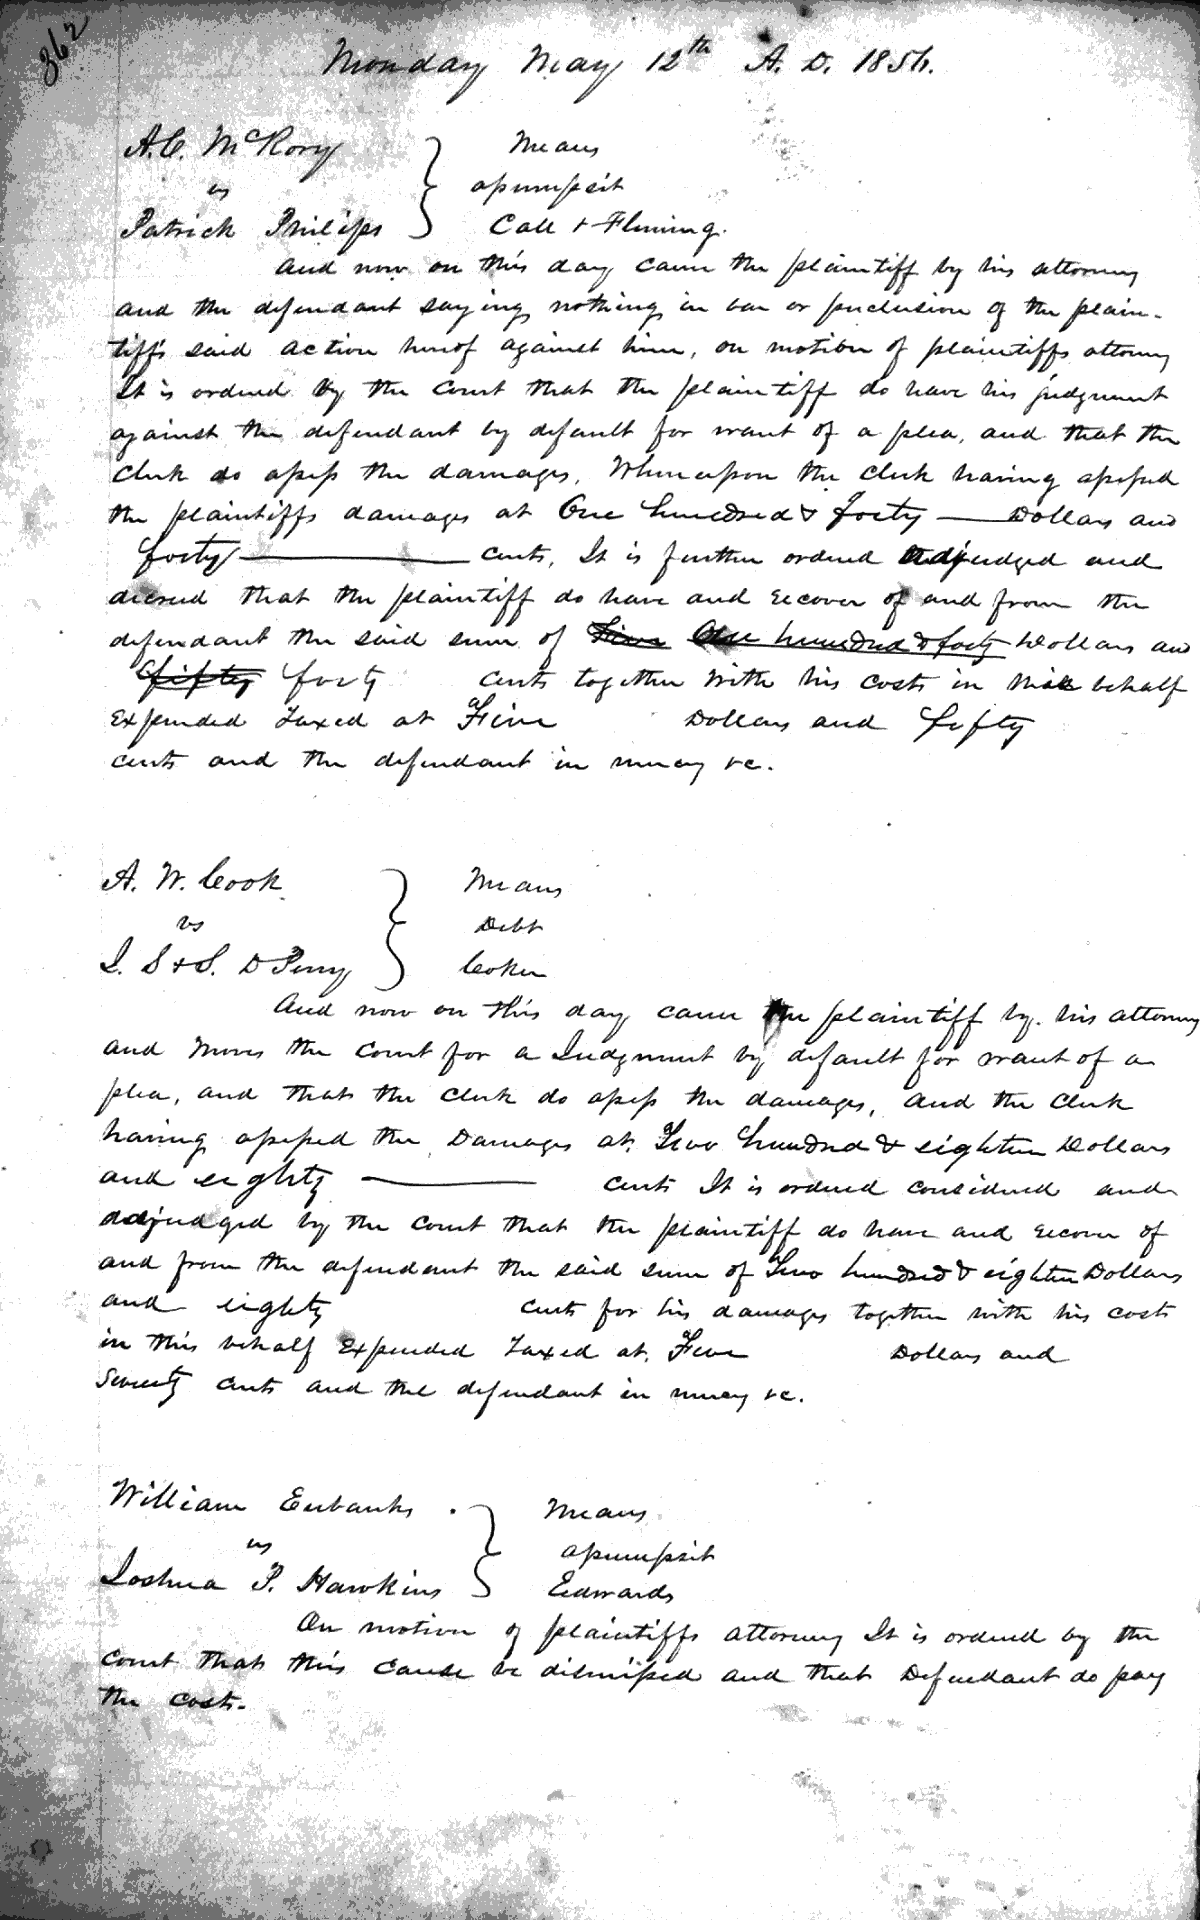 362
Monday May 12th A. D. 1856.
A. C. McRory } Means
vs } assumpsit
Patrick Philips } Call & Fleming.
And now on this day came the plaintiff by his attorney
and the defendant saying nothing in bar or preclusion of the plain-
tiffs said action hereof against him, on motion of plaintiffs attorney
It is ordered by the Court that the plaintiff do have his judgment
against the defendant by default for want of a plea, and that the
clerk do assess the damages, Whereupon the clerk having assessed
the plaintiffs damages at One hundred & forty — Dollars and
forty — cents, It is further ordered adjudged and
decreed that the plaintiff do have and recover of and from the
defendant the said sum of Five One hundred & forty Dollars and
fifty forty cents together with his costs in this behalf
Expended Taxed at Five Dollars and fifty
cents and the defendant in mercy &c.
A. W. Cook } Means
vs } Debt
J. S & S. D Perry } Coker
And now on this day came the plaintiff by his attorney
and moves the Court for a Judgment by default for want of a
plea, and that the clerk do assess the damages, and the clerk
having assessed the Damages at Two hundred & eighteen Dollars
and eighty — cents It is ordered considered and
adjudged by the Court that the plaintiff do have and recover of
and from the defendant the said sum of Two hundred & eighteen Dollars
and eighty cents for his damages together with his costs
in this behalf Expended Taxed at Five Dollars and
Seventy cents and the defendant in mercy &c.
William Eubanks } Means
vs } assumpsit
Joshua P. Hawkins } Edwards
On motion of plaintiffs attorney It is ordered by the
Court that this cause be dismissed and that Defendant do pay
the cost.